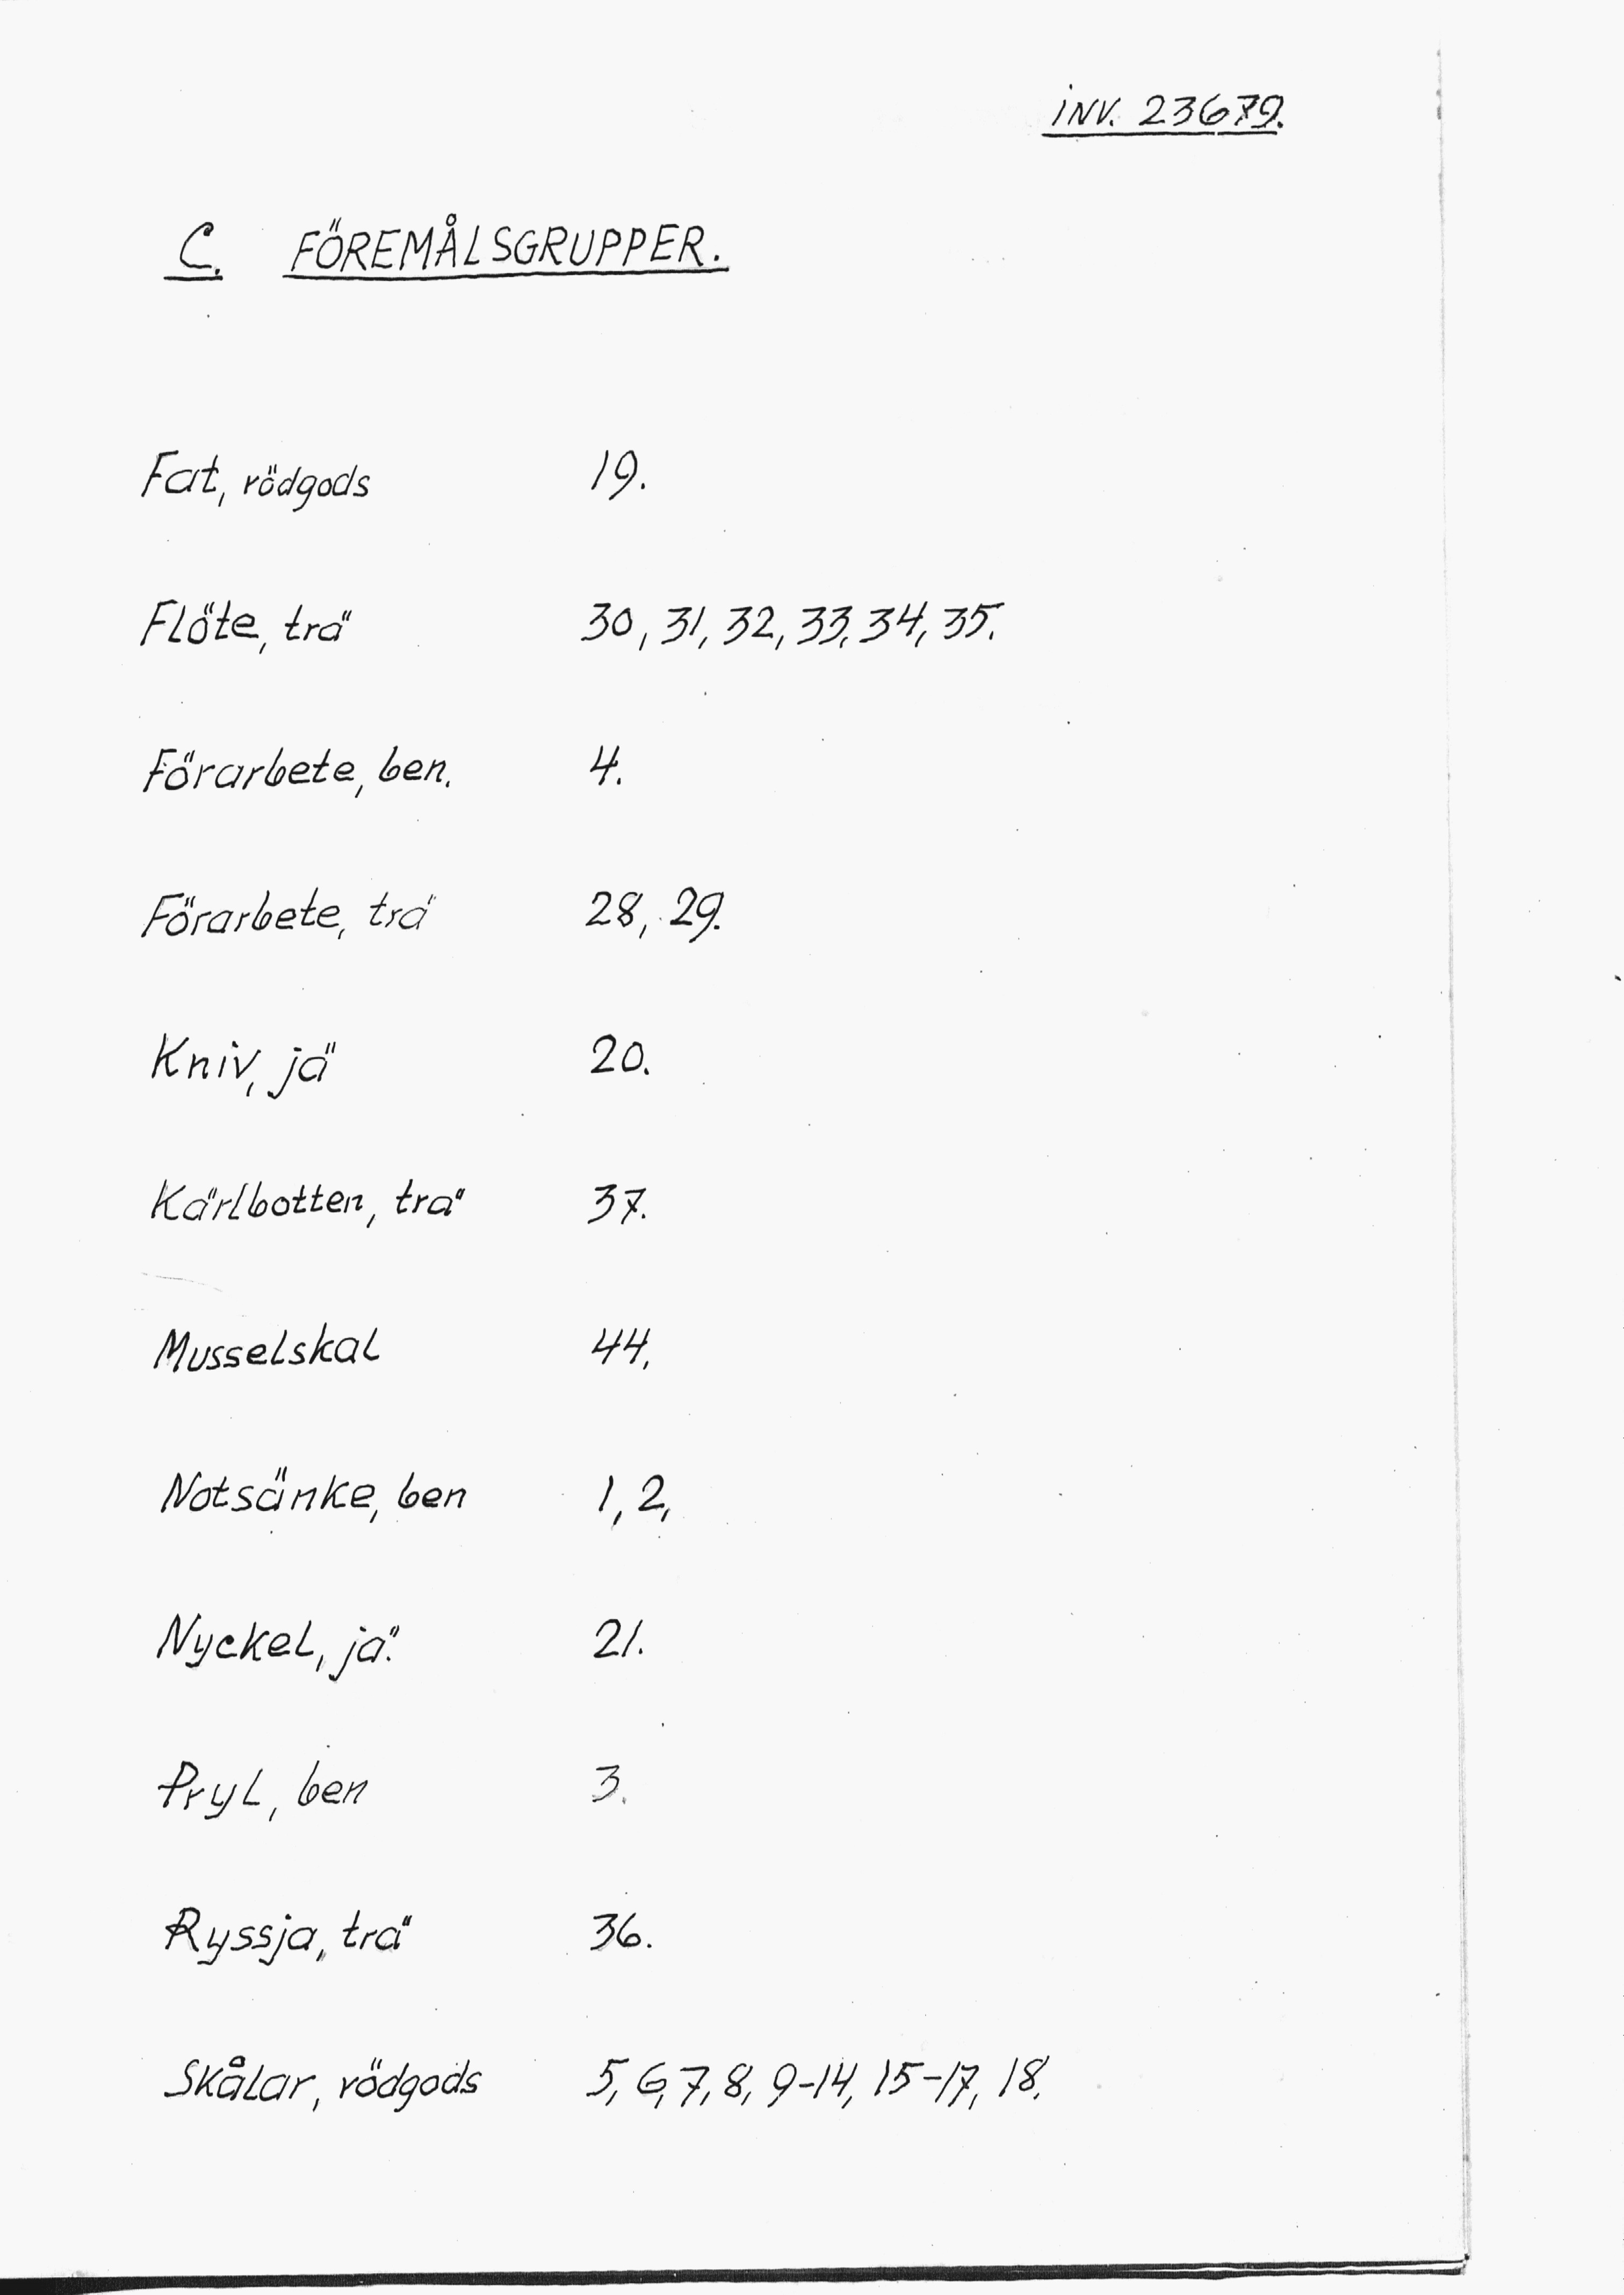 INV. 23679.
C. FÖREMÅLSGRUPPER.
Fat, rödgods 19.
Flöte, trä 30, 31, 32, 33, 34, 35.
Förarbete, ben. 4.
Förarbete, trä 28, 29.
Kniv, jä 20.
Kärlbotten, trä 37.
Musselskal 44.
Notsänke, ben 1, 2,
Nyckel, jä. 21.
Pryl, ben 3.
Ryssja, trä 36.
Skålar, rödgods 5, 6, 7, 8, 9-14, 15-17, 18.